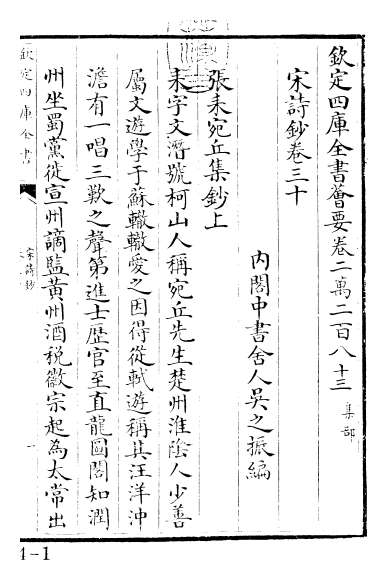 欽定四庫全書薈要卷二萬二百八十三 集部
宋詩鈔卷三十
內閣中書舍人吳之振編
張耒宛丘集鈔上
耒字文潛號柯山人稱宛丘先生楚州淮陰人少善
屬文遊學于蘇轍轍愛之因得從軾遊稱其汪洋沖
澹有一唱三歎之聲第進士歷官至直龍圖閣知潤
州坐蜀黨徙宣州謫監黃州酒稅徽宗起為太常出
欽定四庫全書
宋詩鈔
一
4-1